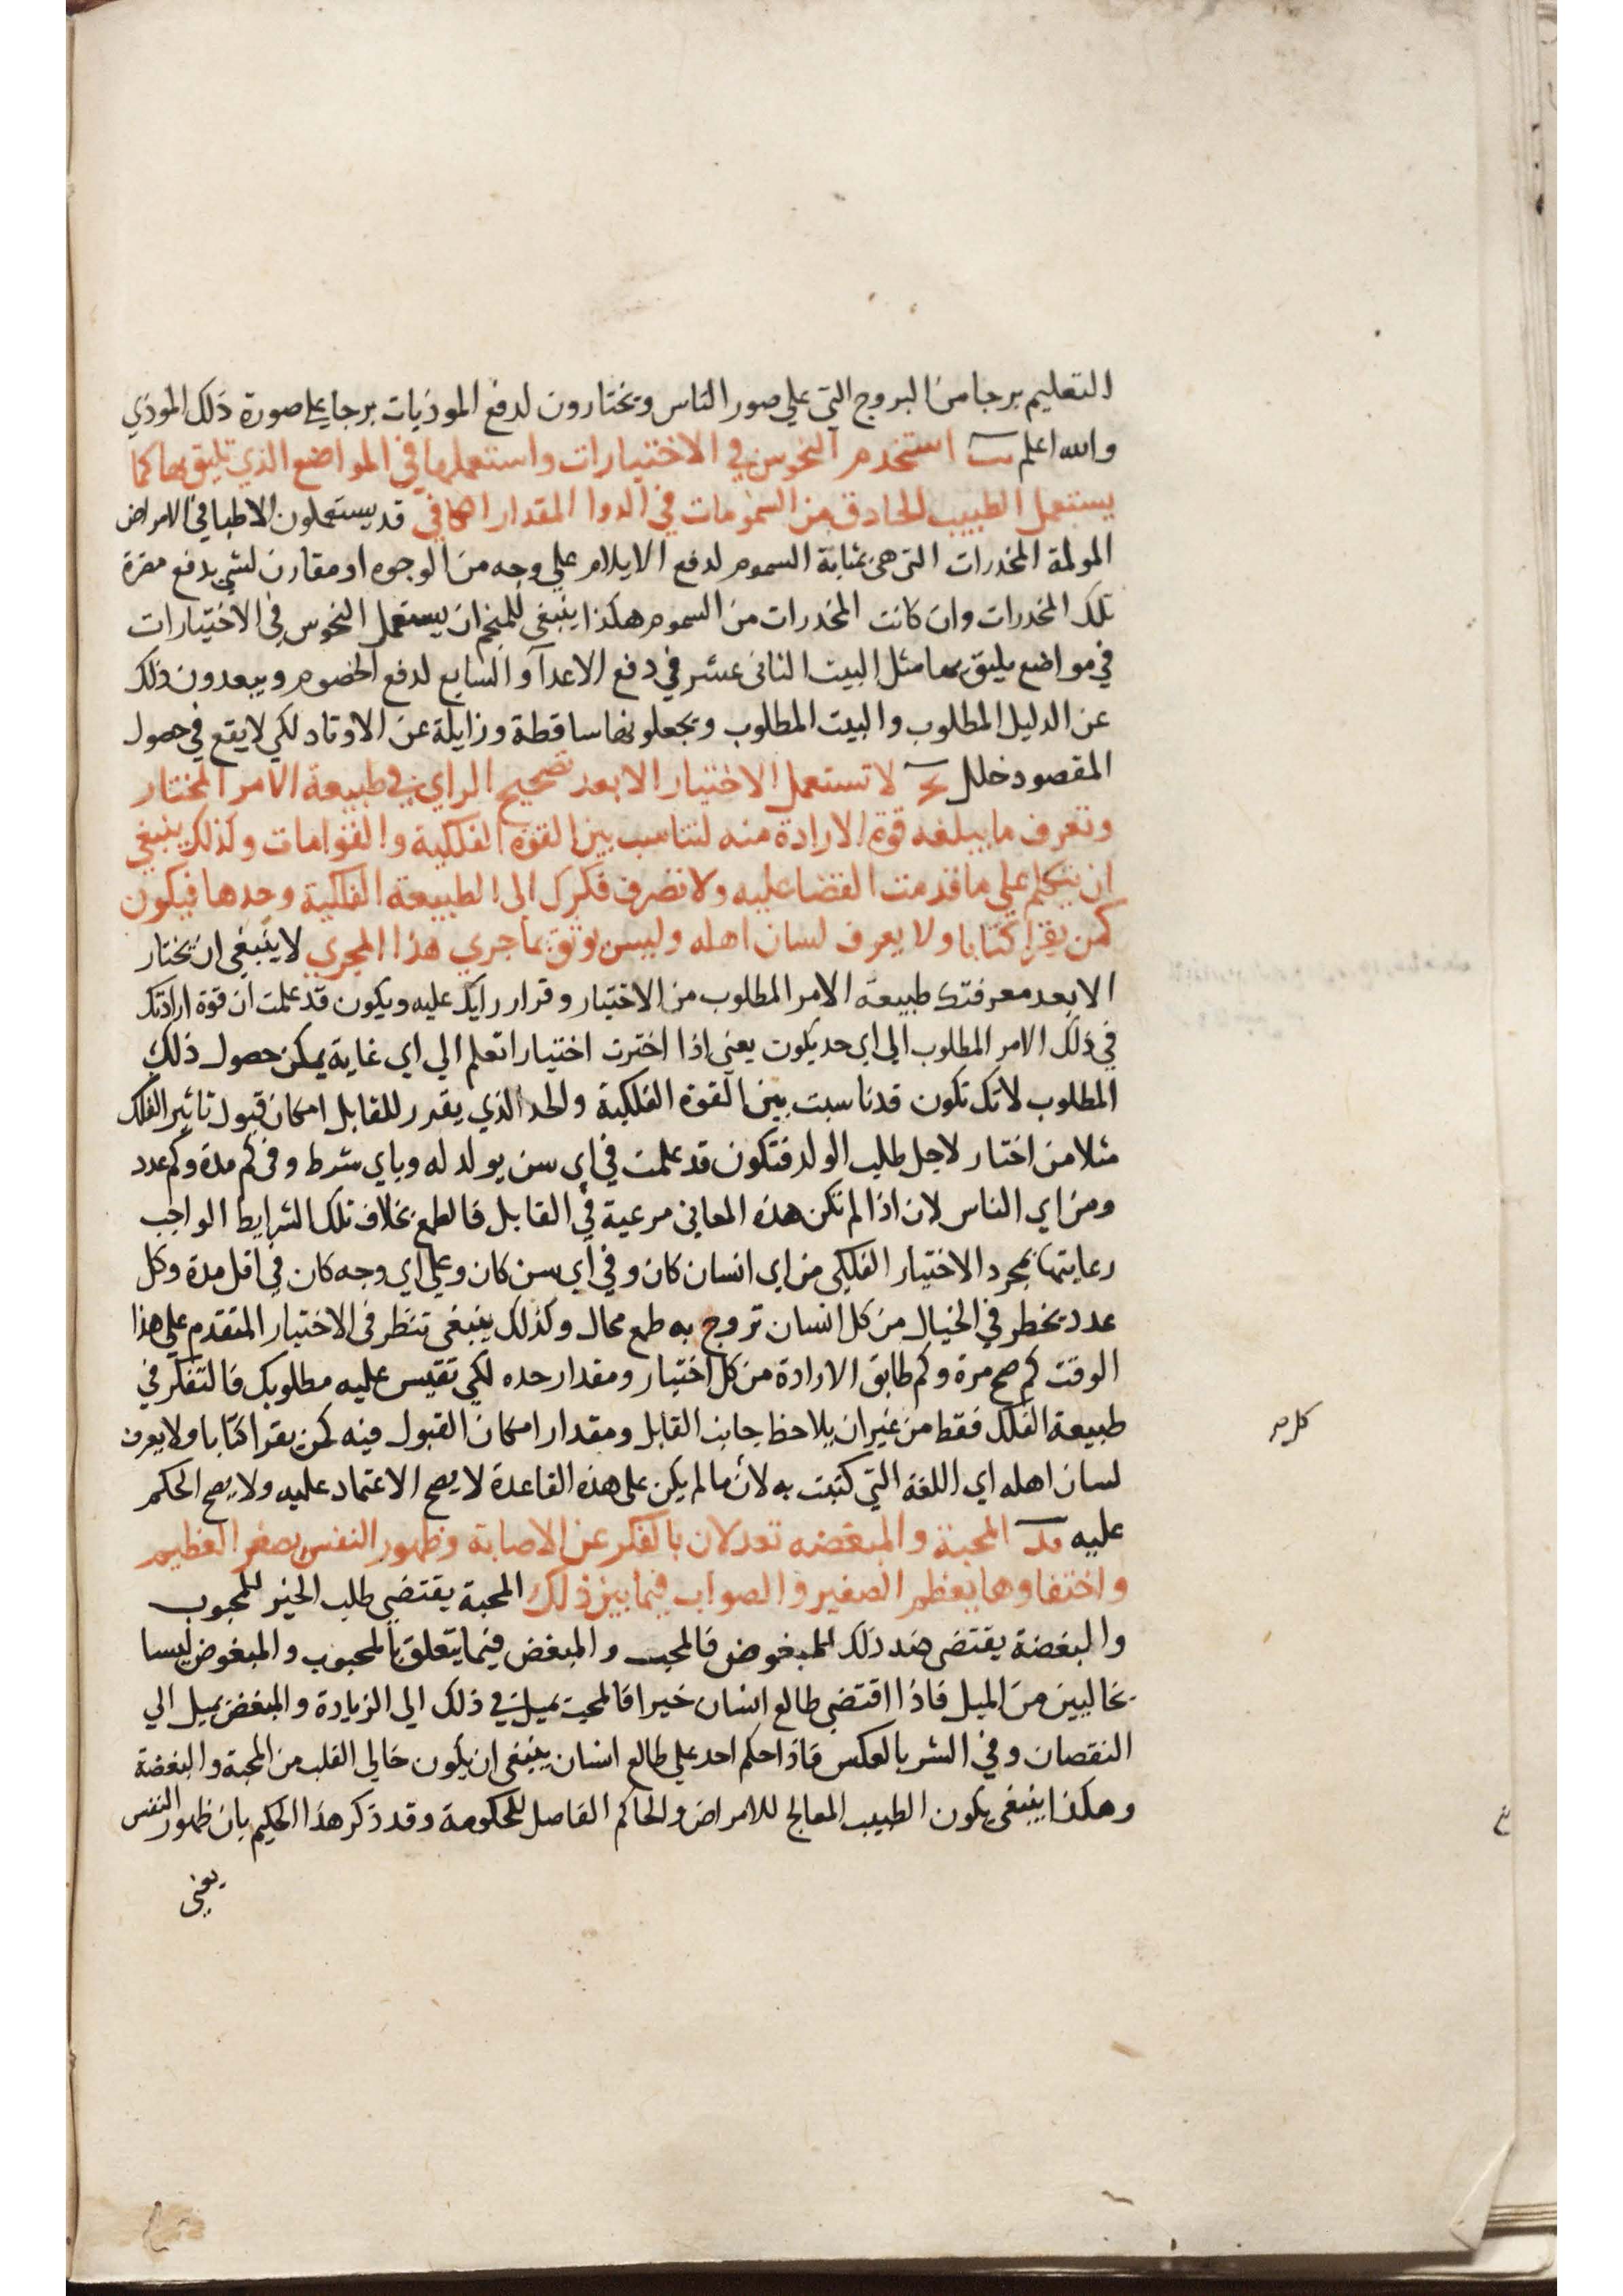 التعليم برجا من البروج التي علي صور الناس ويختارون لدفع الموذيات برجا علي صورة ذلك الموذي
والله اعلم استخدم النحوس في الاختيارات واستعملها في المواضع الذي تليق بها كما
يستعمل الطبيب الحاذق من السمومات في الدوا المقدار الكافي قد يستعملون الاطبا في الامراض
المولمة المخدرات التي هي بمثابة السموم لدفع الايلام علي وجه من الوجوه او مقارن لشي يدفع مضرة
تلك المخدرات وان كانت المخدرات من السموم هكذا ينبغي للمنجم ان يستعمل النحوس في الاختيارات
في مواضع يليق بها مثل البيت الثاني عشر في دفع الاعدآ والسابع لدفع الخصوم ويبعدون ذلك
عن الدليل المطلوب والبيت المطلوب ويجعلونها ساقطة وزايلة عن الاوتاد لكي لا يقع في حصول
المقصود خلل لا تستعمل الاختيار الا بعد تصحيح الراي في طبيعة الامر المختار
وتعرف ما يبلغه قوة الارادة منه لتناسب بين القوة الفلكية والقوامات وكذلك ينبغي
ان يتكلم علي ما قدمت القضا عليه ولا تصرف فكرك الى الطبيعة الفلكية وحدها فيكون
كمن يقرا كتابا ولا يعرف لسان اهله وليس يوثق بما جري هذا المجري لا ينبغي ان يختار
الا بعد معرفتك طبيعة الامر المطلوب من الاختيار وقرار رايك عليه ويكون قد علمت ان قوة ارادتك
في ذلك الامر المطلوب الي اي حد يكون يعني اذا اخترت اختيارا تعلم الي اي غاية يمكن حصول ذلك
المطلوب لانك تكون قد ناسبت بين القوة الفلكية والحد الذي يقدر للقابل امكان قبول تاثير الفلك
مثلا من اختار لاجل طلب الولد فتكون قد علمت في اي سن يولد له وباي شرط وفي كم مدة وكم عدد
ومن اي الناس لان اذا لم تكن هذه المعاني مرعية في القابل فالطمع بخلاف تلك الشرايط الواجب
رعايتها بمجرد الاختيار الفلكي من اي انسان كان وفي اي سن كان وعلي اي وجه كان في اقل مدة وكل
عدد يخطر في الخيال من كل انسان تزوج به طمع محال وكذلك ينبغي تنظر في الاختيار المتقدم علي هذا
الوقت كم صح مرة وكم طابق الارادة من كل اختيار ومقدار حده لكي تقيس عليه مطلوبك فالتفكر في
طبيعة الفلك فقط من غير ان يلاحظ جانب القابل ومقدار امكان القبول فيه كمن يقرا كتابا ولا يعرف
لسان اهله اي اللغة التي كتبت به لان ما لم يكن على هذه القاعدة لا يصح الاعتماد عليه ولا يصح الحكم
عليه المحبة والمبغضه تعدلان بالفكر عن الاصابة وظهور النفس يصغر العظيم
واختفاوها يعظم الصغير والصواب فيما بين ذلك المحبة يقتضي طلب الخير للمحبوب
والبغضة يقتضي ضد ذلك للمبغوض فالمحب والمبغض فيما يتعلق بالمحبوب والمبغوض ليسا
بخاليين من الميل فاذا اقتضي طالع انسان خيرا فالمحب يميل في ذلك الي الزيادة والمبغض يميل الي
النقصان وفي الشر بالعكس فاذا حكم احد علي طالع انسان ينبغي ان يكون خالي القلب من المحبة والبغضة
وهكذا ينبغي يكون الطبيب المعالج للامراض والحاكم الفاصل للحكومة وقد ذكر هذا الحكيم بان ظهور النفس
يعني